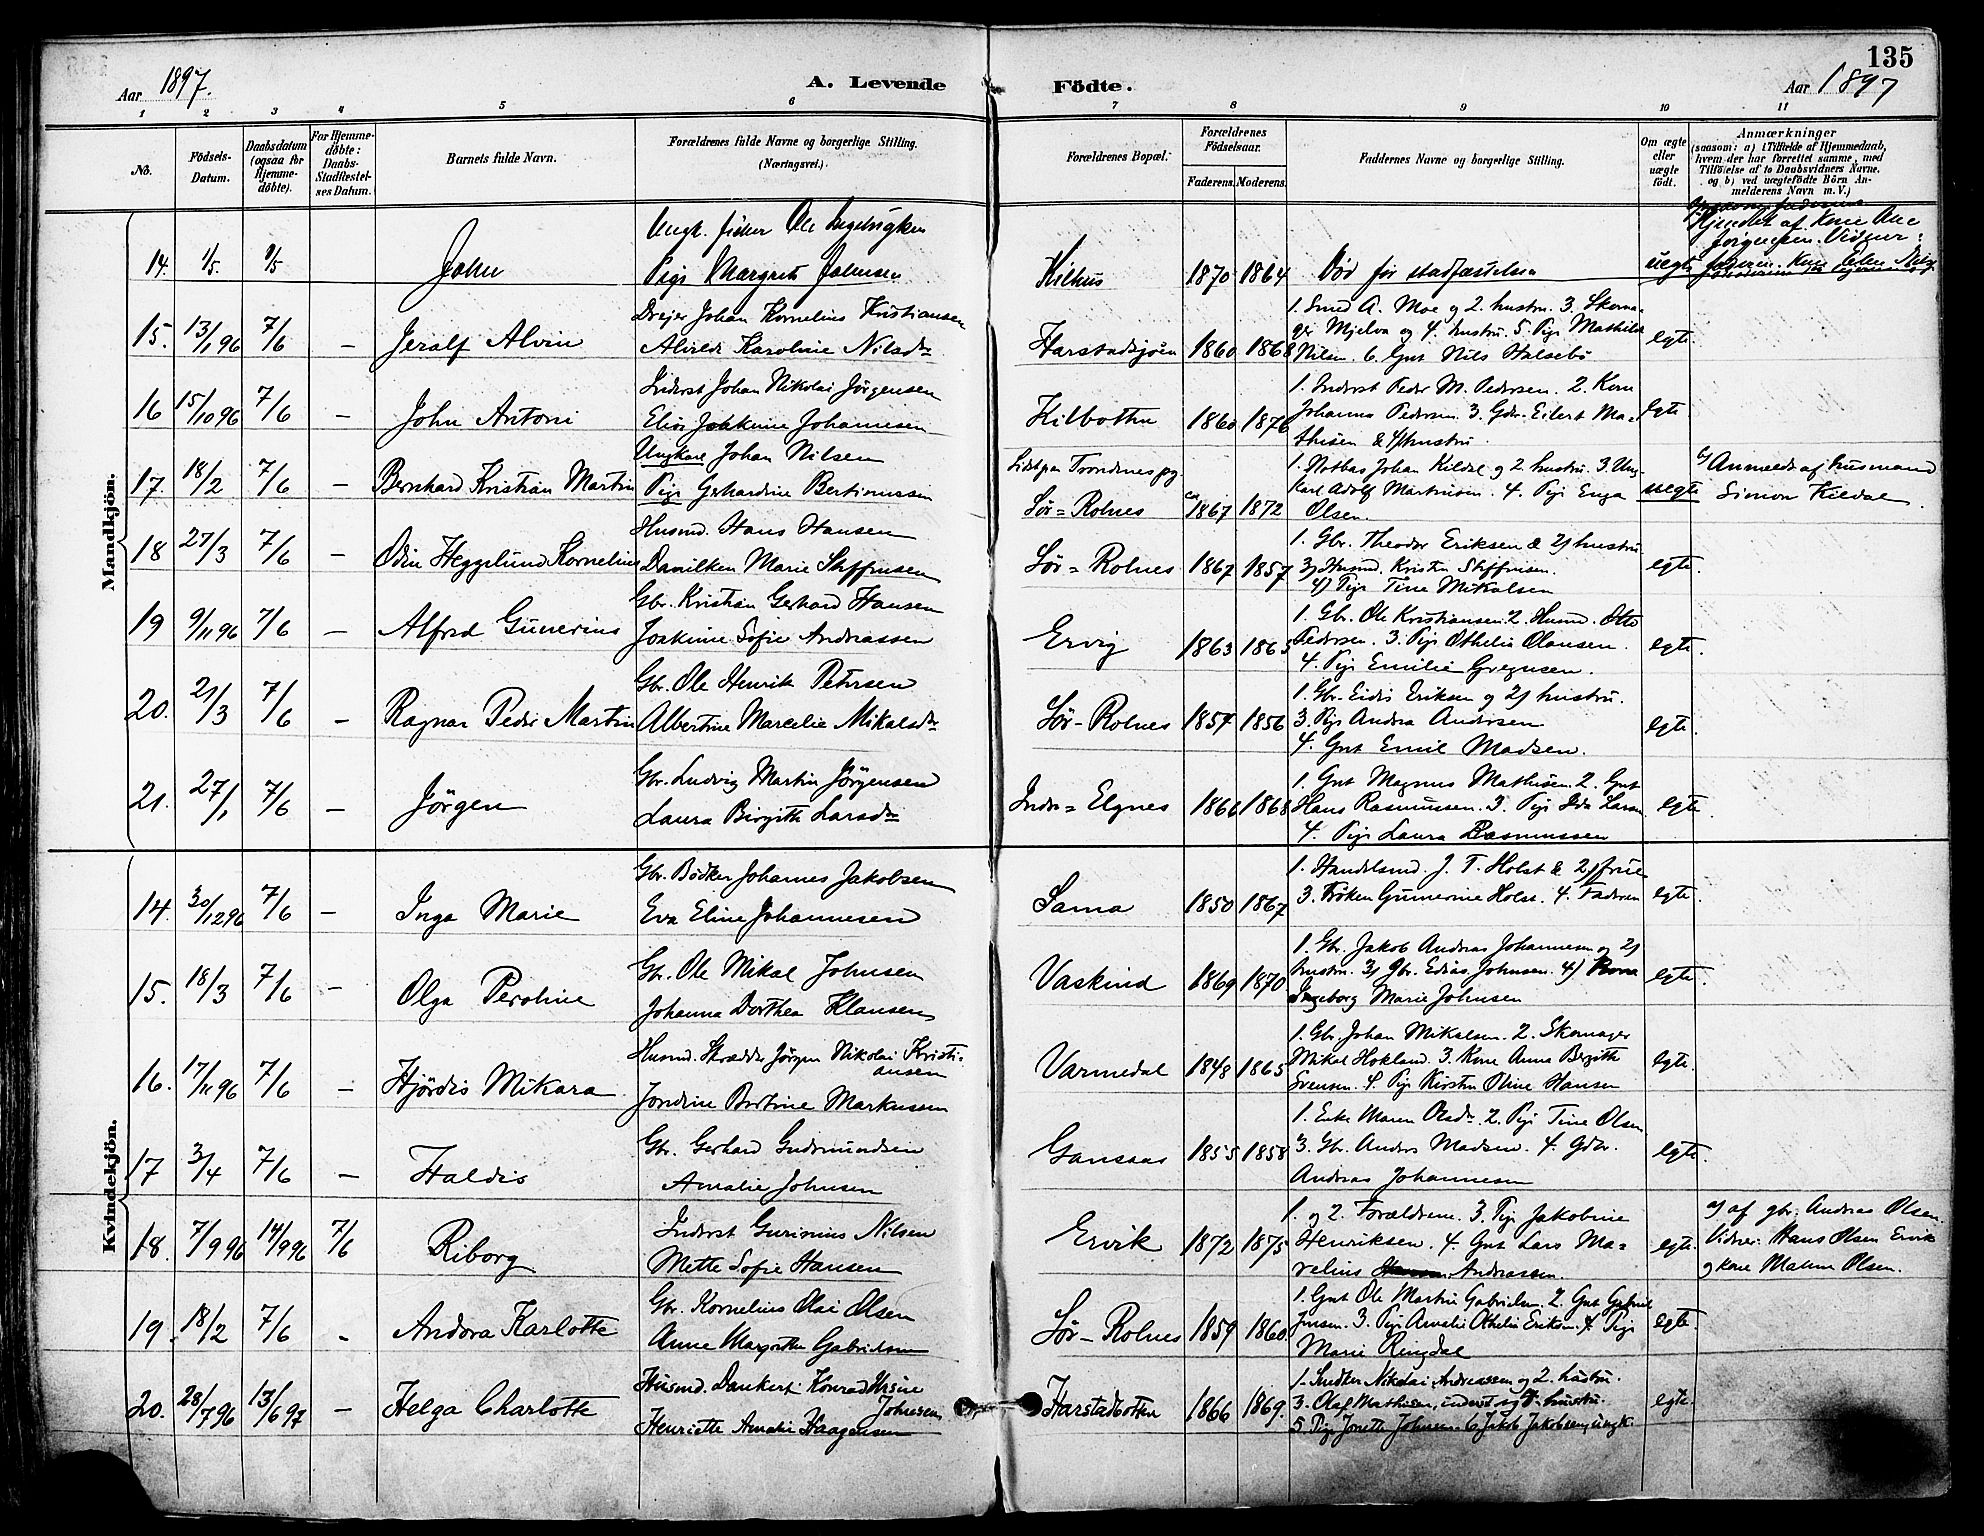 135
Aar 1897.
A. Levende
Födte.
Aar 1897
1 2 3 4 5 6 7 8 9 10 11
No.
Födsels-
Datum.
Daabsdatum
(ogsaa for
Hjemme-
döbte).
For Hjemme-
döbte:
Daabs-
Stadfæstel-
ses Datum.
Barnets fulde Navn.
Forældrenes fulde Navne og borgerlige Stilling.
(Næringsvei.)
Forældrenes Bopæl.
Forældrenes
Födselsaar.
Faderens. Moderens.
Faddernes Navne og borgerlige Stilling.
Om ægte
eller
uægte
födt.
Anmærkninger
(saasom: a) i Tilfælde af Hjemmedaab,
hvem der har forrettet samme, med
Tilföielse af to Daabsvidners Navne,
og b) ved uægtefödte Börn An-
melderens Navn m. V.)
Mandkjön.
14. 1/5. 9/5 John
Ungk. fisker Ole
Pige Margrete Johnsen
Kilhus 1870 1864 Död för stadfæstelsen uegte
Hjemdöbt af Kone Ane
15. 13/1 96 7/6 – Jeralf Alvin
Drejer Johan Kornelius Kristiansen
Alvilde Karoline Nilsdr
Harstadsjöen 1860 1868
1. Smed A. Moe og 2. hustru. 3. Skoma-
ger Mjelva og 4. hustru. 5. Pige Mathilde
Nilsen. 6. Gmt Nils Halsebö
egte.
16 15/10 96 7/6 – John Antoni
Inderst Johan Nikolai Jörgensen
Elise Joakime Johannesen
Kilbotten 1860 1876
1. Inderst Peder M. Pedersen. 2. Kone
Johanna Pedersen. 3. Gdr. Eilert Ma-
thisen & 4/ hustru.
egte
17. 18/2 7/6 – Bernhard Kristian Martin
Ungkarl Johan Nilsen
Pige Gerhardine Bertinussen
Trondenes pg
Sör-Rolnes ca 1867 1872
1. Notbas Johan Kildal og 2. hustru. 3. Ung-
karl Adolf Martinsen. 4. Pige Enga
Olsen.
uegte
b/ Anmeldt af husmand
Simon Kildal.
18 27/3 7/6 – Odin Heggelund Kornelius
Husmd. Hans Hansen
Danilken Marie Steffensen
Sör-Rolnes 1867 1857
1. Gbr. Theodor Eriksen & 2/ hustru
3/ Husmd. Kristen Steffensen.
4/ Pige Tine Mikalsen
egte.
19 9/11 96 7/6 – Alfred Gunerius
Gbr. Kristian Gerhard Hansen
Joakime Sofie Andreassen
Ervig 1863 1865
1. Gbr. Ole Kristiansen. 2. Husmd. Otto
Pedersen. 3. Pige Othelia Olausen.
4. Pige Emilie Gregusen.
egte.
20. 21/3 7/6 – Ragnar Peder Martin
Gbr. Ole Henrik Petersen
Albertine Marcelie Mikalsdr
Sör-Rolnes 1857 1856
1. Gbr. Eidis Eriksen og 2/ hustru.
3. Pige Andrea Andersen
4. Gmt Emil Madsen.
egte.
21. 27/1 7/6 – Jörgen
Gbr. Ludvig Martin Jörgensen
Laura Birgitte Larsdr
Indre-Elgnes 1866 1868
1. Gmt Magnus Mathisen. 2. Gmt
Hans Rasmussen. 3. Pige Ida Larsen
4. Pige Laura Rasmussen
egte.
Kvindekjön.
14. 30/12 96 7/6 – Inga Marie
Gbr. Bödker Johannes Jakobsen
Eva Eline Johannesen
Sama 1850 1867
1. Handelsmd. J. T. Holst & 2/ frue
3. Fröken Gunnerine Holst. 4. Faderen
egte.
15. 18/3 7/6 – Olga Peroline
Gbr. Ole Mikal Johnsen
Johanna Dorthea Klausen
Vaskind 1869 1870
1. Gbr. Jakob Andreas Johannesen og 2/
hustru. 3/ gbr. Edias Johnsen. 4/
Ingeborg Marie Johnsen
egte.
16. 17/11 96 7/6 – Hjördis Mikara
Husmd. Skrædder Jörgen Nikolai Kristi-
ansen
Jondine Bertine Markussen
Varmedal 1848 1865
1. Gbr. Johan Mikalsen. 2. Skomager
Mikal Hokland. 3. Kone Anna Bergitte
Svensen. 4. Pige Kirsten Oline Hansen
egte.
17 3/4 7/6 – Haldis
Gbr. Gerhard Gudmundsen
Amalie Johnsen
Gansaas 1855 1858
1. Enke Maren Olsdr. 2. Pige Tine Olsen
3. Gbr. Anders Madsen. 4. Gdbr.
Andreas Johannesen
egte.
18. 7/9 96 14/9 96 7/6 Riborg
Inderst Gurinius Nilsen
Mette Sofie Hansen
Ervik 1872 1875
1. og 2. Forældrene. 3. Pige Jakobine
Henriksen. 4. Gmt Lars Ma-
relius Andreassen.
egte.
a/ af gbr. Andreas Olsen.
Vidner: Hans Olsen Ervik
og kone Malene Olsen.
19. 18/2 7/6 – Andora Karlotte
Gbr. Kornelius Olai Olsen
Anne Margrethe Gabrielsen
Sör-Rolnes 1859 1860
1. Gmt Ole Martin Gabrielsen. 2. Gmt Gabriel
Jensen. 3. Pige Amalie Othelia Eriksen. 4. Pige
Marie Ringdal
egte.
20. 28/7 96 13/6 97 – Helga Charlotte
Husmd. Dankert Konrad Ursin
Johnsen
Henriette Amalie Haagensen
Harstadbotten 1866 1869.
1. Snedker Nikolai Andreassen og 2. hustru.
3. Olaf Mathisen, inderst og 4. hustru.
5. Pige Jonette Johnsen. 6. Jakob Jakobsen, ungk.
egte.